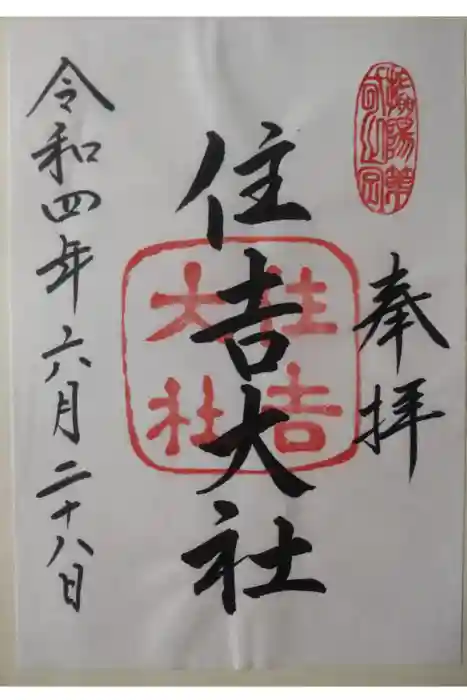 奉拝
住吉大社
住吉
大社
令和四年六月二十八日